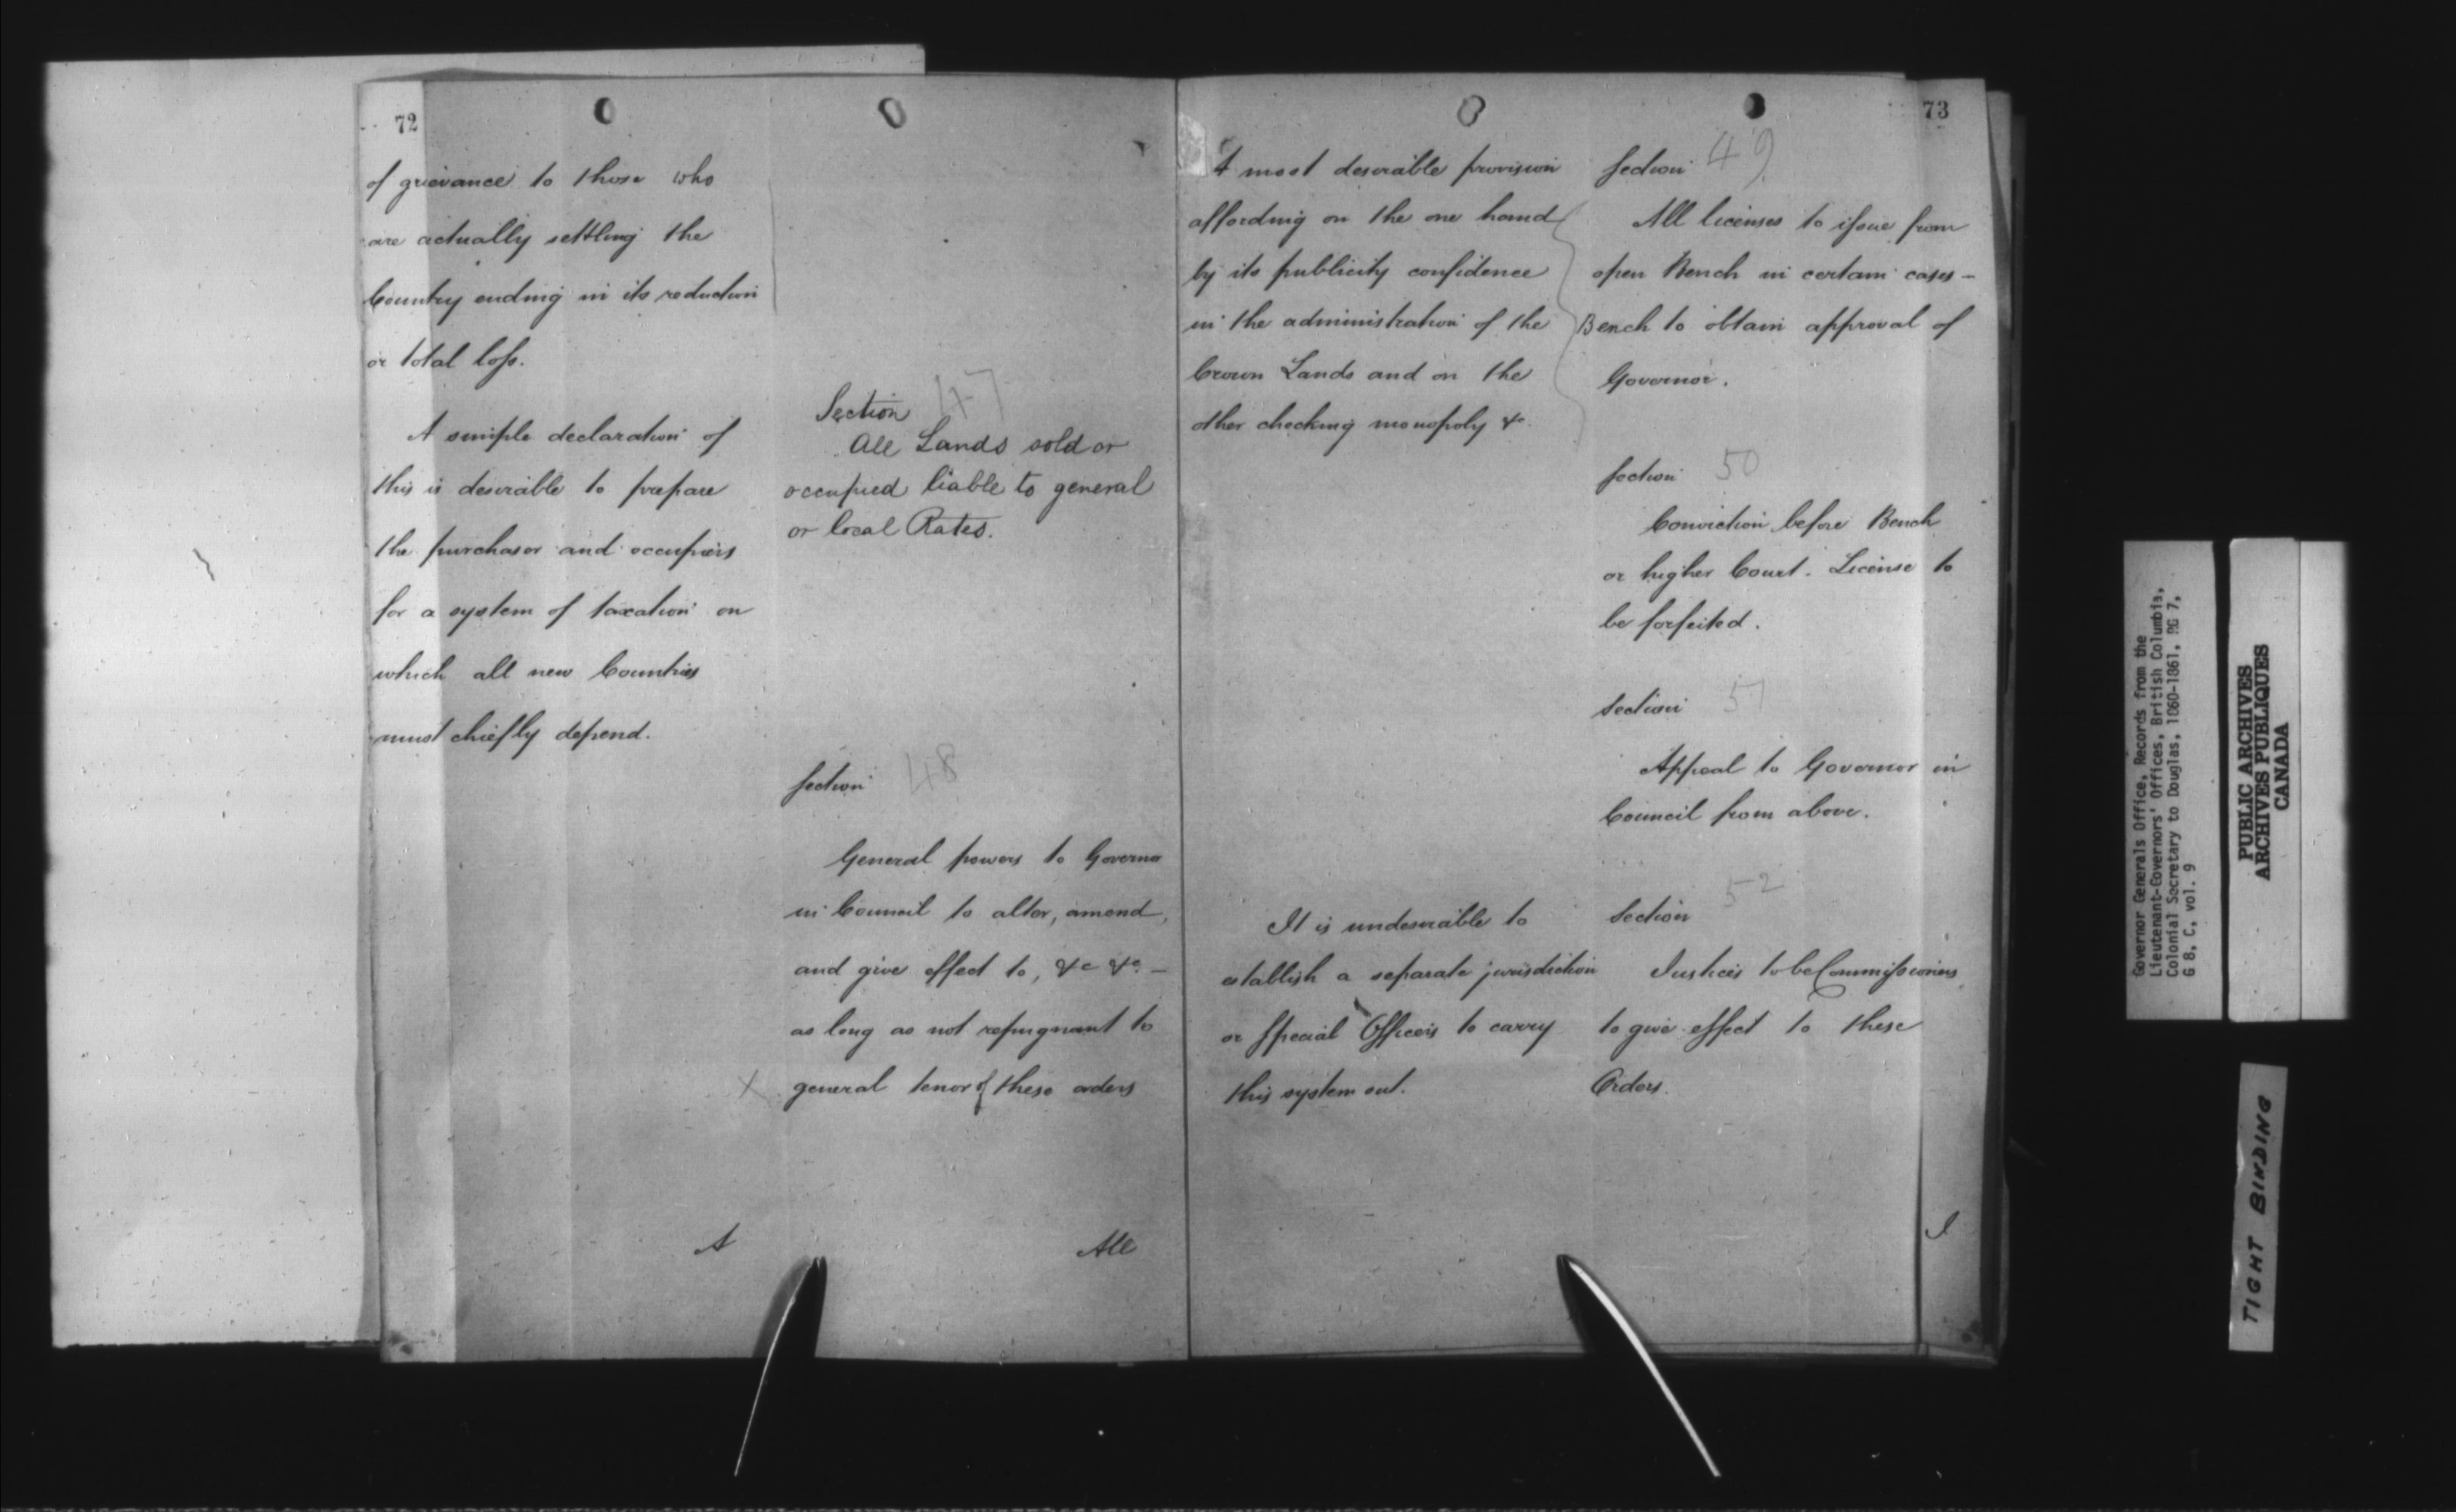 72
of grievance to those who
are actually settling the
Country ending in its reduction
or total loss.
A simple declaration of
this is desirable to prepare
the purchaser and occupiers
for a system of taxation on
which all new Countries
must chiefly depend.
A
Section 47
All Lands sold or
occupied liable to general
or local Rates.
Section 48
General powers to Governor
in Council to alter, amend,
and give effect to, &c &c. –
as long as not repugnant to
X general tenor of these orders
All
73
A most desirable provision
affording on the one hand
by its publicity confidence
in the administration of the
Crown Lands and on the
other checking monopoly &c.
It is undesirable to
establish a separate jurisdiction
or Special Officers to carry
this system out.
Section 49
All licenses to issue from
open Bench in certain cases –
Bench to obtain approval of
Governor.
Section 50
Conviction before Bench
or higher Court. License to
be forfeited.
Section 51
Appeal to Governor in
Council from above.
Section 52
Justices to be Commissioners
to give effect to these
Orders.
I
Governor Generals Office, Records from the
Lieutenant-Governors' Offices, British Columbia,
Colonial Secretary to Douglas, 1860-1861, RG 7,
G 8, C, vol. 9
PUBLIC ARCHIVES
ARCHIVES PUBLIQUES
CANADA
TIGHT BINDING